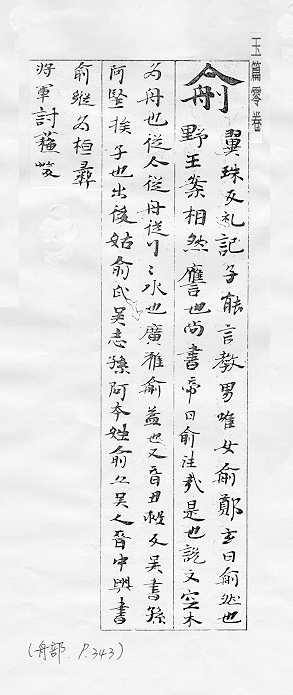 玉篇零卷
俞 翼珠反礼記子能言教男唯女俞鄭玄曰俞然也
野王案相然譍言也尚書帝曰俞往哉是也說文空木
為舟也從亼從舟從刂〻水也廣雅俞益也又音丑救反吳書孫
阿堅挨子也出後姑俞氏吳志孫阿本姓俞公吳人晉中興書
俞縱為桓彞
將軍討蘓峻
(舟部 P.343)